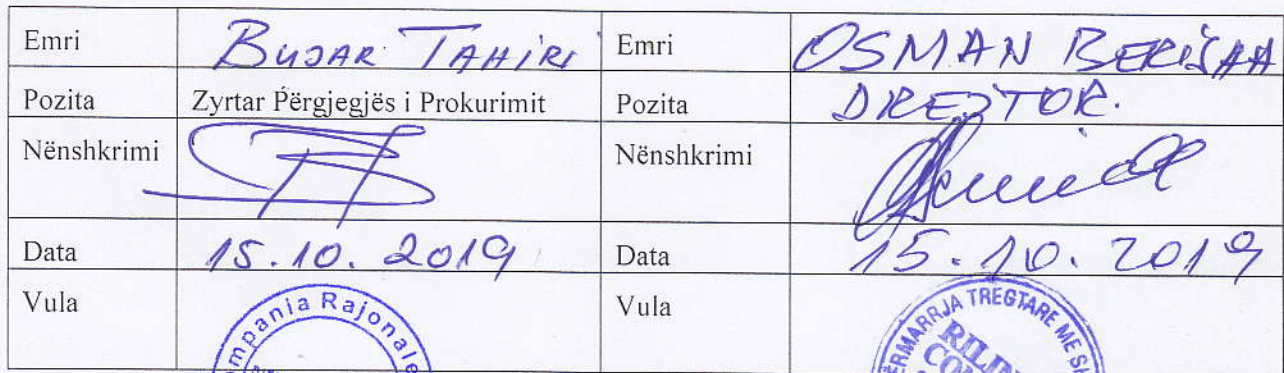 Emri BUJAR TAHIRI Emri OSMAN BERISHA
Pozita Zyrtar Përgjegjës i Prokurimit Pozita DREJTOR.
Nënshkrimi Nënshkrimi
Data 15.10.2019 Data 15.10.2019
Vula Vula
Kompania Rajonale
TREGTARE ME